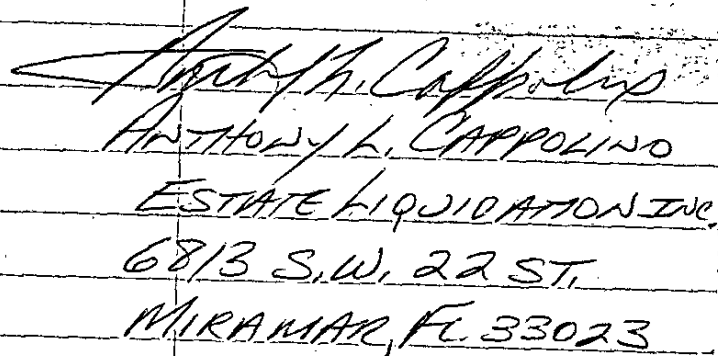 Anthony L. Cappolino
ANTHONY L. CAPPOLINO
ESTATE LIQUIDATION INC.
6813 S.W. 22 ST.
MIRAMAR, FL. 33023